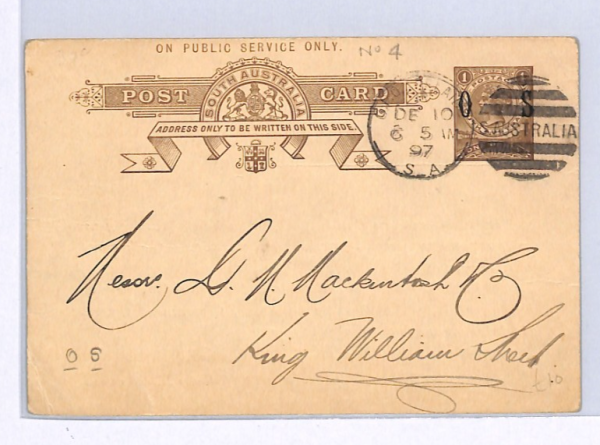 ON PUBLIC SERVICE ONLY.
No 4
SOUTH AUSTRALIA
POST CARD
ADDRESS ONLY TO BE WRITTEN ON THIS SIDE.
1
POSTAGE
O S
DE 10
6 5 AM
97
S.A
AUSTRALIA
Messrs G. H. Mackintosh & Co
King William Street.
O S
£10